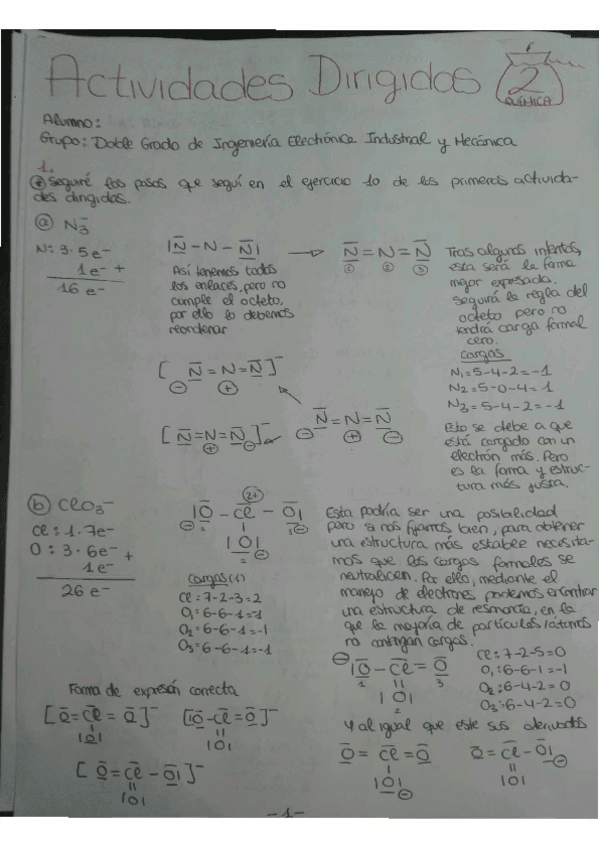 Actividades Dirigidas 2
QUÍMICA
Alumno:
Grupo: Doble Grado de Ingeniería Electrónica Industrial y Mecánica
1.
* Seguiré los pasos que seguí en el ejercicio 10 de las primeras activida-
des dirigidas.
a) N₃⁻
N: 3·5e⁻
1e⁻ +
16 e⁻
|N̅ - N - N̅|
Así tenemos todos
los enlaces, pero no
cumple el octeto,
por ello lo debemos
reordenar
→ N̅ = N = N̅
① ② ③
Tras algunos intentos,
esta será la forma
mejor expresada.
Seguirá la regla del
octeto pero no
tendrá carga formal
cero.
Cargas
N₁ = 5-4-2 = -1
N₂ = 5-0-4 = 1
N₃ = 5-4-2 = -1
Esto se debe a que
está cargado con un
electrón más. Pero
es la forma y estruc-
tura más justa.
[ N̲̅ = N = N̲̅ ]⁻
⊖ ⊕
N̲̅ = N = N̲̅
⊖ ⊕ ⊖
[ N̲̅ = N = N̲̅ ]⁻
⊕ ⊖
b) ClO₃⁻
Cl: 1·7e⁻
O: 3·6e⁻ +
1e⁻
26 e⁻
2+
|O̲̅ - Cl̅ - O̲̅|
⊖ 1 | 3 ⊖
|O̲|
2 ⊖
Cargas (1)
Cl = 7-2-3 = 2
O₁ = 6-6-1 = -1
O₂ = 6-6-1 = -1
O₃ = 6-6-1 = -1
Esta podría ser una posibilidad
pero si nos fijamos bien, para obtener
una estructura más estable necesita-
mos que las cargas formales se
neutralicen. Por ello, mediante el
manejo de electrones podemos encontrar
una estructura de resonancia, en la
que la mayoría de partículas
no contengan cargas.
⊖ |O̲̅ - Cl̅ = O̲̅
1 || 3
|O|
2
Cl: 7-2-5=0
O₁: 6-6-1=-1
O₂: 6-4-2=0
O₃: 6-4-2=0
Y al igual que este sus derivados
O̲̅ = Cl̅ = O̲̅
|
|O̲| ⊖
O̲̅ = Cl̅ - O̲̅| ⊖
||
|O|
Forma de expresión correcta
[ O̲̅ = Cl̅ = O̲̅ ]⁻
|
|O̲|
[ |O̲̅ - Cl̅ = O̲̅ ]⁻
||
|O|
[ O̲̅ = Cl̅ - O̲̅| ]⁻
||
|O|
-1-